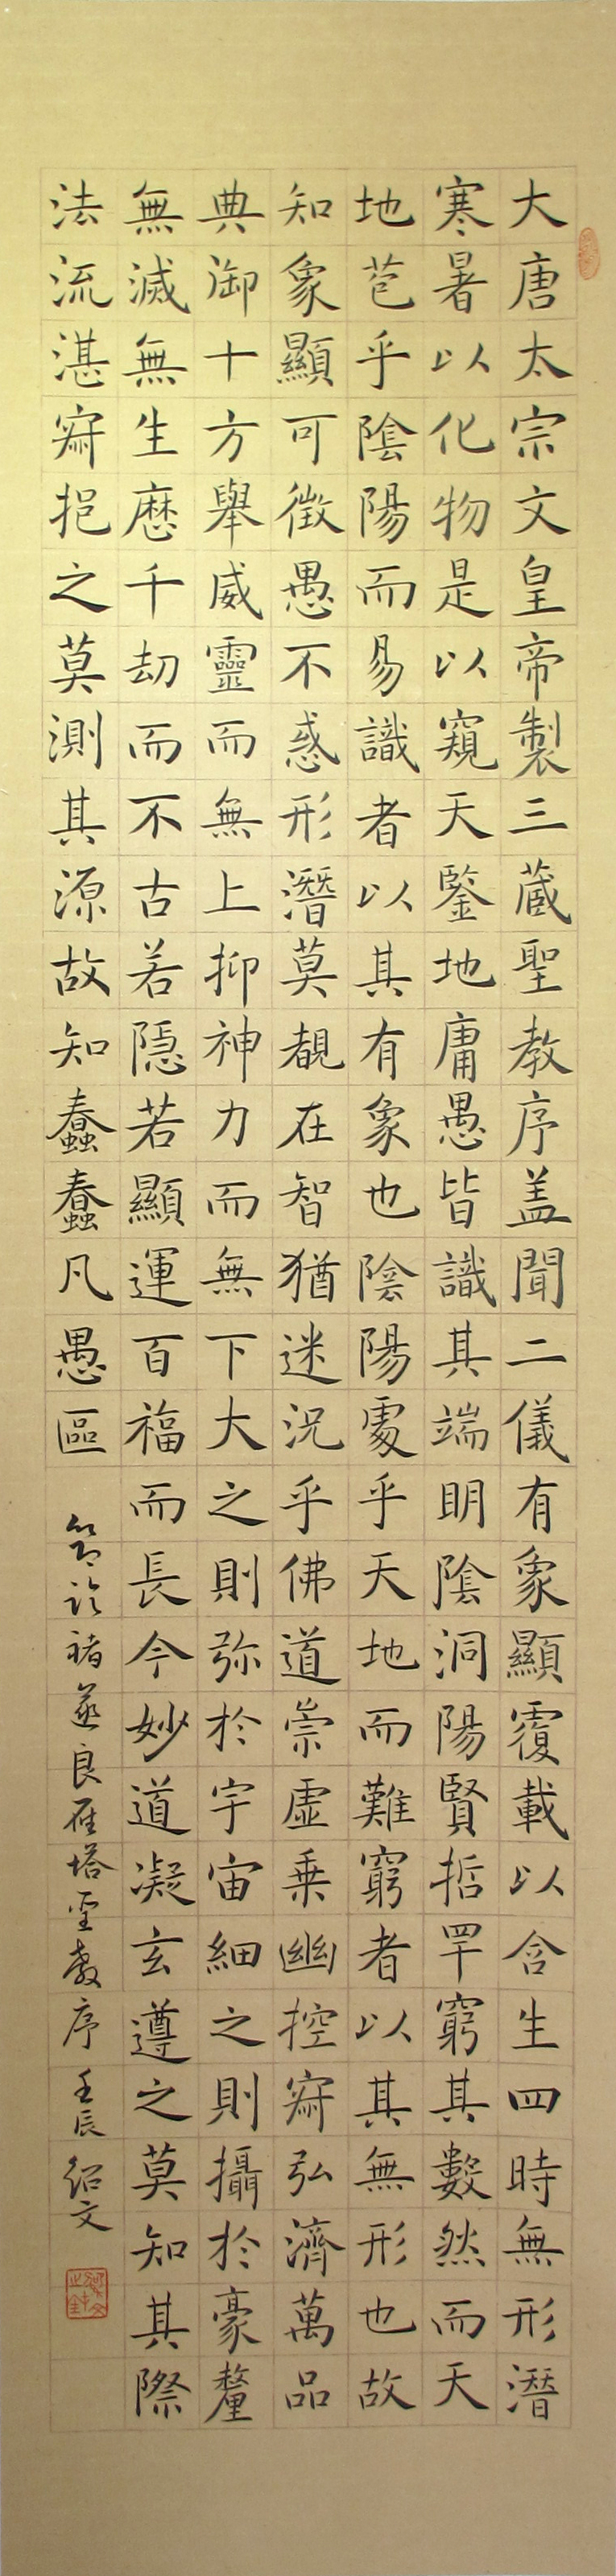 大唐太宗文皇帝製三藏聖教序盖聞二儀有象顯覆載以含生四時無形潛
寒暑以化物是以窺天鑒地庸愚皆識其端明陰洞陽賢哲罕窮其數然而天
地苞乎陰陽而易識者以其有象也陰陽處乎天地而難窮者以其無形也故
知象顯可徵愚不惑形潛莫覩在智猶迷況乎佛道崇虛乗幽控寂弘濟萬品
典御十方舉威靈而無上抑神力而無下大之則弥於宇宙細之則攝於豪釐
無滅無生歷千劫而不古若隱若顯運百福而長今妙道凝玄遵之莫知其際
法流湛寂挹之莫測其源故知蠢蠢凡愚區
節臨褚遂良雁塔聖教序壬辰紹文